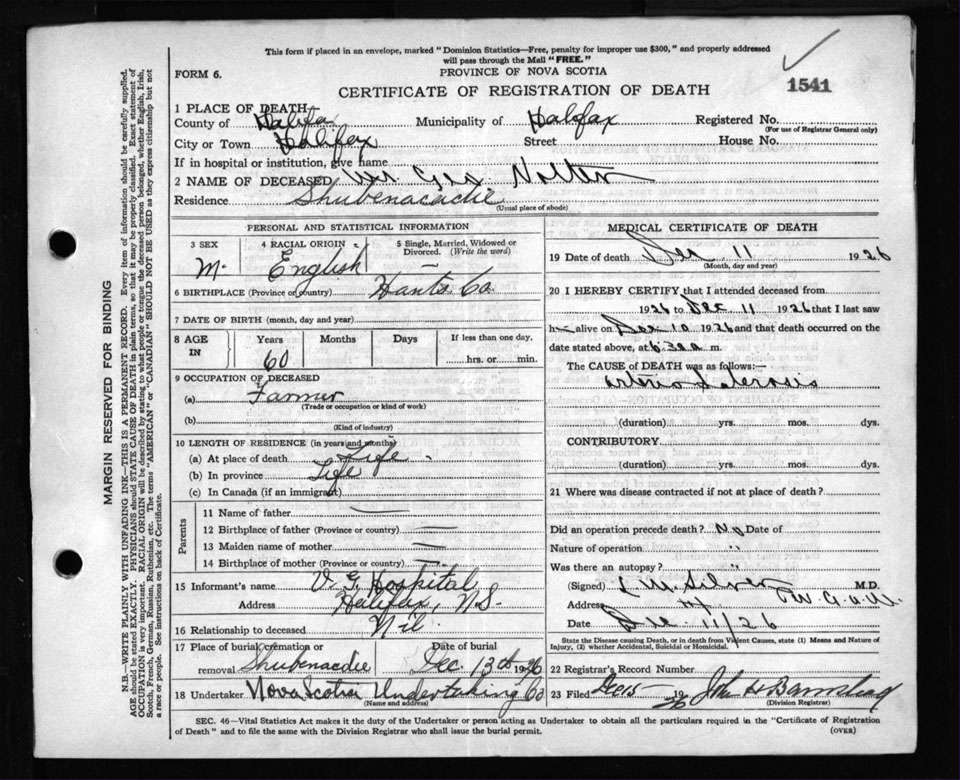 This form if placed in an envelope, marked "Dominion Statistics—Free, penalty for improper use $300," and properly addressed
will pass through the Mail "FREE."
FORM 6.
PROVINCE OF NOVA SCOTIA
CERTIFICATE OF REGISTRATION OF DEATH
1541
1 PLACE OF DEATH
County of Halifax Municipality of Halifax Registered No.
(For use of Registrar General only)
City or Town Halifax Street House No.
If in hospital or institution, give name
2 NAME OF DECEASED Geo
Residence Shubenacadie
(Usual place of abode)
PERSONAL AND STATISTICAL INFORMATION
3 SEX 4 RACIAL ORIGIN 5 Single, Married, Widowed or
Divorced. (Write the word)
M. English
6 BIRTHPLACE (Province or country) Hants Co.
7 DATE OF BIRTH (month, day and year)
8 AGE IN Years Months Days If less than one day,
60 hrs. or min.
9 OCCUPATION OF DECEASED
(a) Farmer
(Trade or occupation or kind of work)
(b)
(Kind of industry)
10 LENGTH OF RESIDENCE (in years and months)
(a) At place of death Life
(b) In province Life
(c) In Canada (if an immigrant)
Parents
11 Name of father —
12 Birthplace of father (Province or country) —
13 Maiden name of mother —
14 Birthplace of mother (Province or country) —
15 Informant's name V. G. Hospital
Address Halifax, N.S.
16 Relationship to deceased Nil
17 Place of burial, cremation or Date of burial
removal Shubenacdie Dec. 13th 1926
18 Undertaker Nova Scotia Undertaking Co
(Name and address)
MEDICAL CERTIFICATE OF DEATH
19 Date of death Dec 11 1926
(Month, day and year)
20 I HEREBY CERTIFY that I attended deceased from
1926 to Dec 11 1926 that I last saw
h alive on Dec 10 1926 and that death occurred on
date stated above, at m.
The CAUSE of DEATH was as follows:—
Arterio Sclerosis
(duration) yrs. mos. dys.
CONTRIBUTORY
(duration) yrs. mos. dys.
21 Where was disease contracted if not at place of death?
Did an operation precede death? No Date of
Nature of operation "
Was there an autopsy? "
(Signed) Silver M.D.
Address
Date Dec 11/26
State the Disease causing Death, or in death from Violent Causes, state (1) Means and Nature of
Injury, (2) whether Accidental, Suicidal or Homicidal.
22 Registrar's Record Number
23 Filed Dec 15 1926 John H Barnstead
(Division Registrar)
SEC. 46—Vital Statistics Act makes it the duty of the Undertaker or person acting as Undertaker to obtain all the particulars required in the "Certificate of Registration
of Death" and to file the same with the Division Registrar who shall issue the burial permit. (OVER)
MARGIN RESERVED FOR BINDING
N.B.—WRITE PLAINLY WITH UNFADING INK—THIS IS A PERMANENT RECORD. Every item of information should be carefully supplied.
AGE should be stated EXACTLY. PHYSICIANS should STATE CAUSE OF DEATH in plain terms, so that it may be properly classified. Exact statement of
OCCUPATION is very important. RACIAL ORIGIN will be described by stating to what people or tongue the deceased person belonged, whether English, Irish,
Scotch, French, German, Russian, Ruthenian, etc. The terms "AMERICAN" or "CANADIAN" SHOULD NOT BE USED as they express citizenship but not
a race or people. See instructions on back of Certificate.